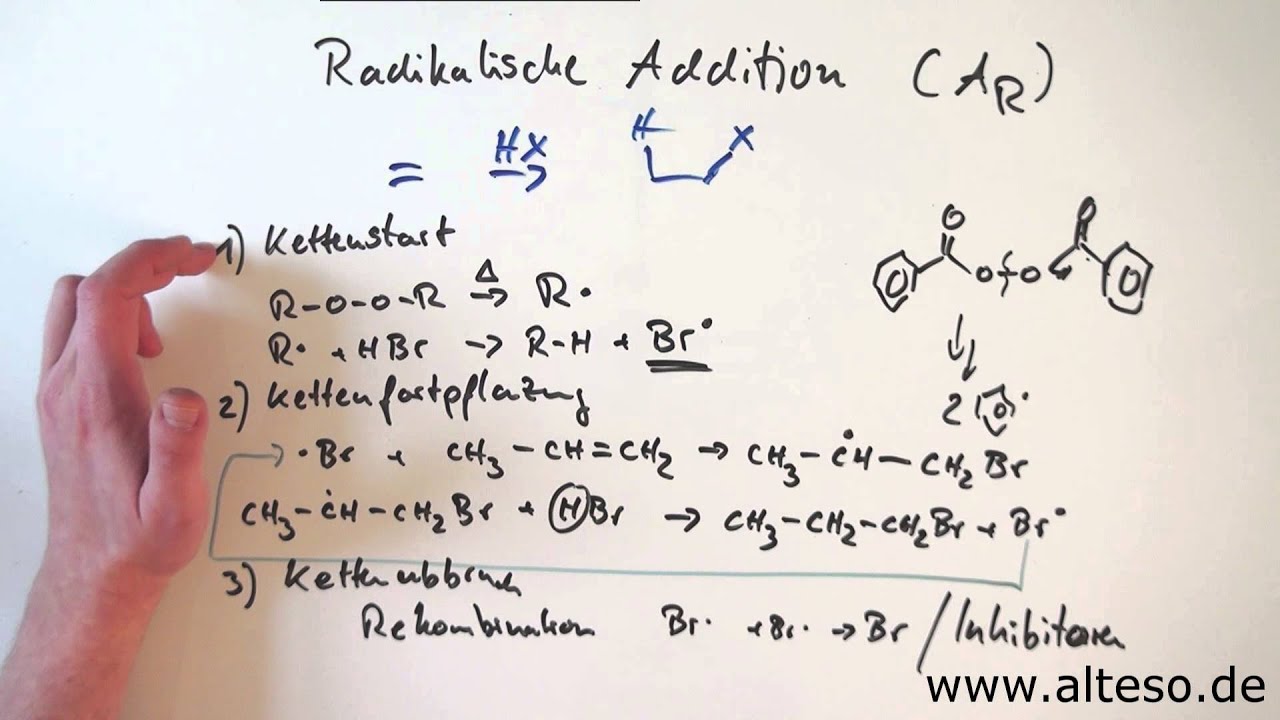 Radikalische Addition (A_R)
= HX → H X
1) Kettenstart
R-O-O-R Δ→ R•
R• + HBr → R-H + Br•
O O
O O
2
2) Kettenfortpflazung
•Br + CH3 - CH = CH2 → CH3 - ĊH - CH2 Br
CH3 - ĊH - CH2Br + HBr → CH3 - CH2 - CH2Br + Br•
3) Kettenabbruch
Rekombination Br• + Br• → Br / Inhibitoren
www.alteso.de